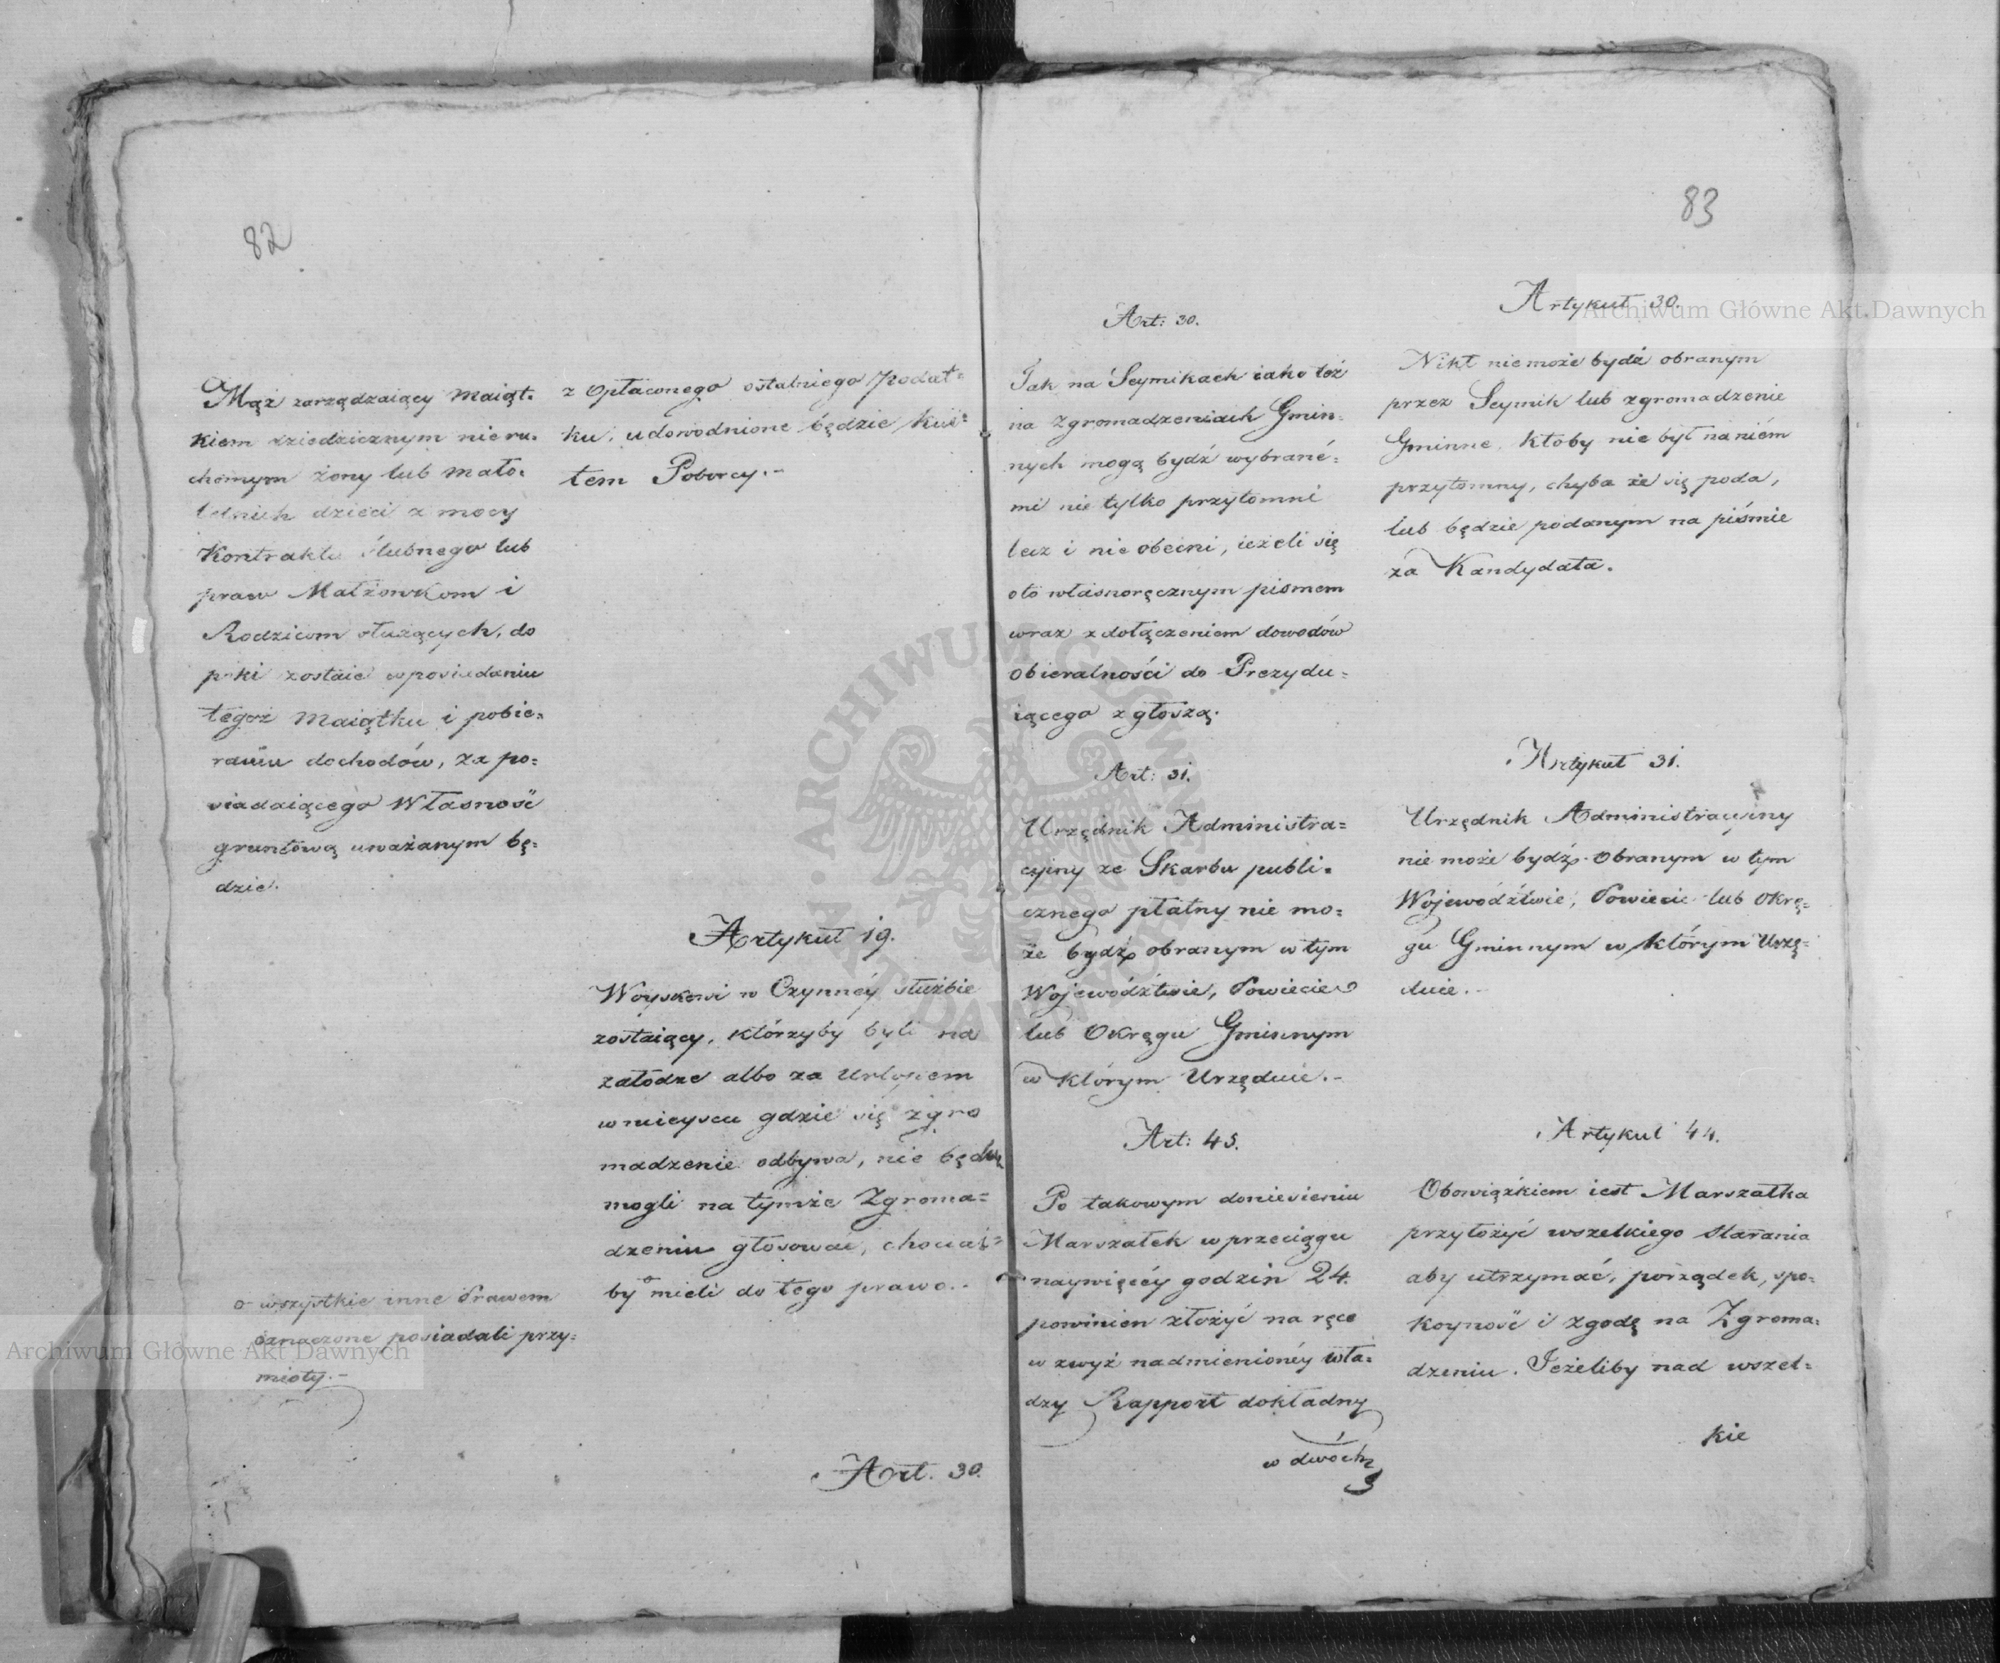 82
Mąż zarządzaiący Maiąt-
kiem dziedzicznym nieru-
chomym żony lub mało-
letnich dzieci z mocy
Kontraktu Ślubnego lub
praw Małżonkom i
Rodzicom służących, do
póki zostaie w posiadaniu
tegoż Maiątku i pobie-
raniu dochodów, za po-
siadaiącego Własność
gruntową uważanym bę-
dzie.
o wszystkie inne Prawem
oznaczone posiadali przy-
mioty.-
z opłaconego ostatniego podat-
ku, udowodnione będzie kwi-
tem Poborcy.-
Artykuł 19.
Woyskowi w Czynnéy służbie
zostaiący, którzyby byli na
załódze albo za Urlopem
w mieyscu gdzie się zgro
madzenie odbywa, nie będą
mogli na tymże Zgroma-
dzeniu głosować, chociaż-
by o mieli do tego prawo.-
Art. 30.
83
Art: 30.
Jak na Seymikach iako też
na Zgromadzeniach Gmin-
nych mogą bydź wybrané-
mi nie tylko przytomni
lecz i nie obecni, ieżeli się
oto własnoręcznym pismem
wraz z dołączeniem dowodów
Obieralności do Prezydu-
iącego zgłoszą.
Art: 31.
Urzędnik Administra-
cyiny ze Skarbu publi-
cznego płatny nie mo-
że bydź obranym w tym
Województwie, Powiecie
lub Okręgu Gminnym
w którym Urzęduie.-
Art: 45.
Po takowym doniesieniu
Marszałek w przeciągu
naywięcéy godzin 24.
powinien złożyć na ręce
w zwyż nadmienionéy wła-
dzy Rapport dokładny
w dwóch
Artykuł 30.
Nikt nie może bydź obranym
przez Seymik lub zgromadzenie
Gminne, ktoby nie był na niém
przytomny, chyba że się poda,
lub będzie podanym na piśmie
za Kandydata.
Artykuł 31.
Urzędnik Administracyiny
nie może bydź obranym w tym
Województwie, Powiecie lub Okrę-
gu Gminnym w którym Urzę-
duie.-
Artykuł 44.
Obowiązkiem iest Marszałka
przyłożyć wszelkiego starania
aby utrzymać, porządek, spo-
koyność i zgodę na Zgroma-
dzeniu. Jeżeliby nad wszel-
kie
Archiwum Główne Akt Dawnych
Archiwum Główne Akt Dawnych
ARCHIWUM GŁÓWNE AKT DAWNYCH